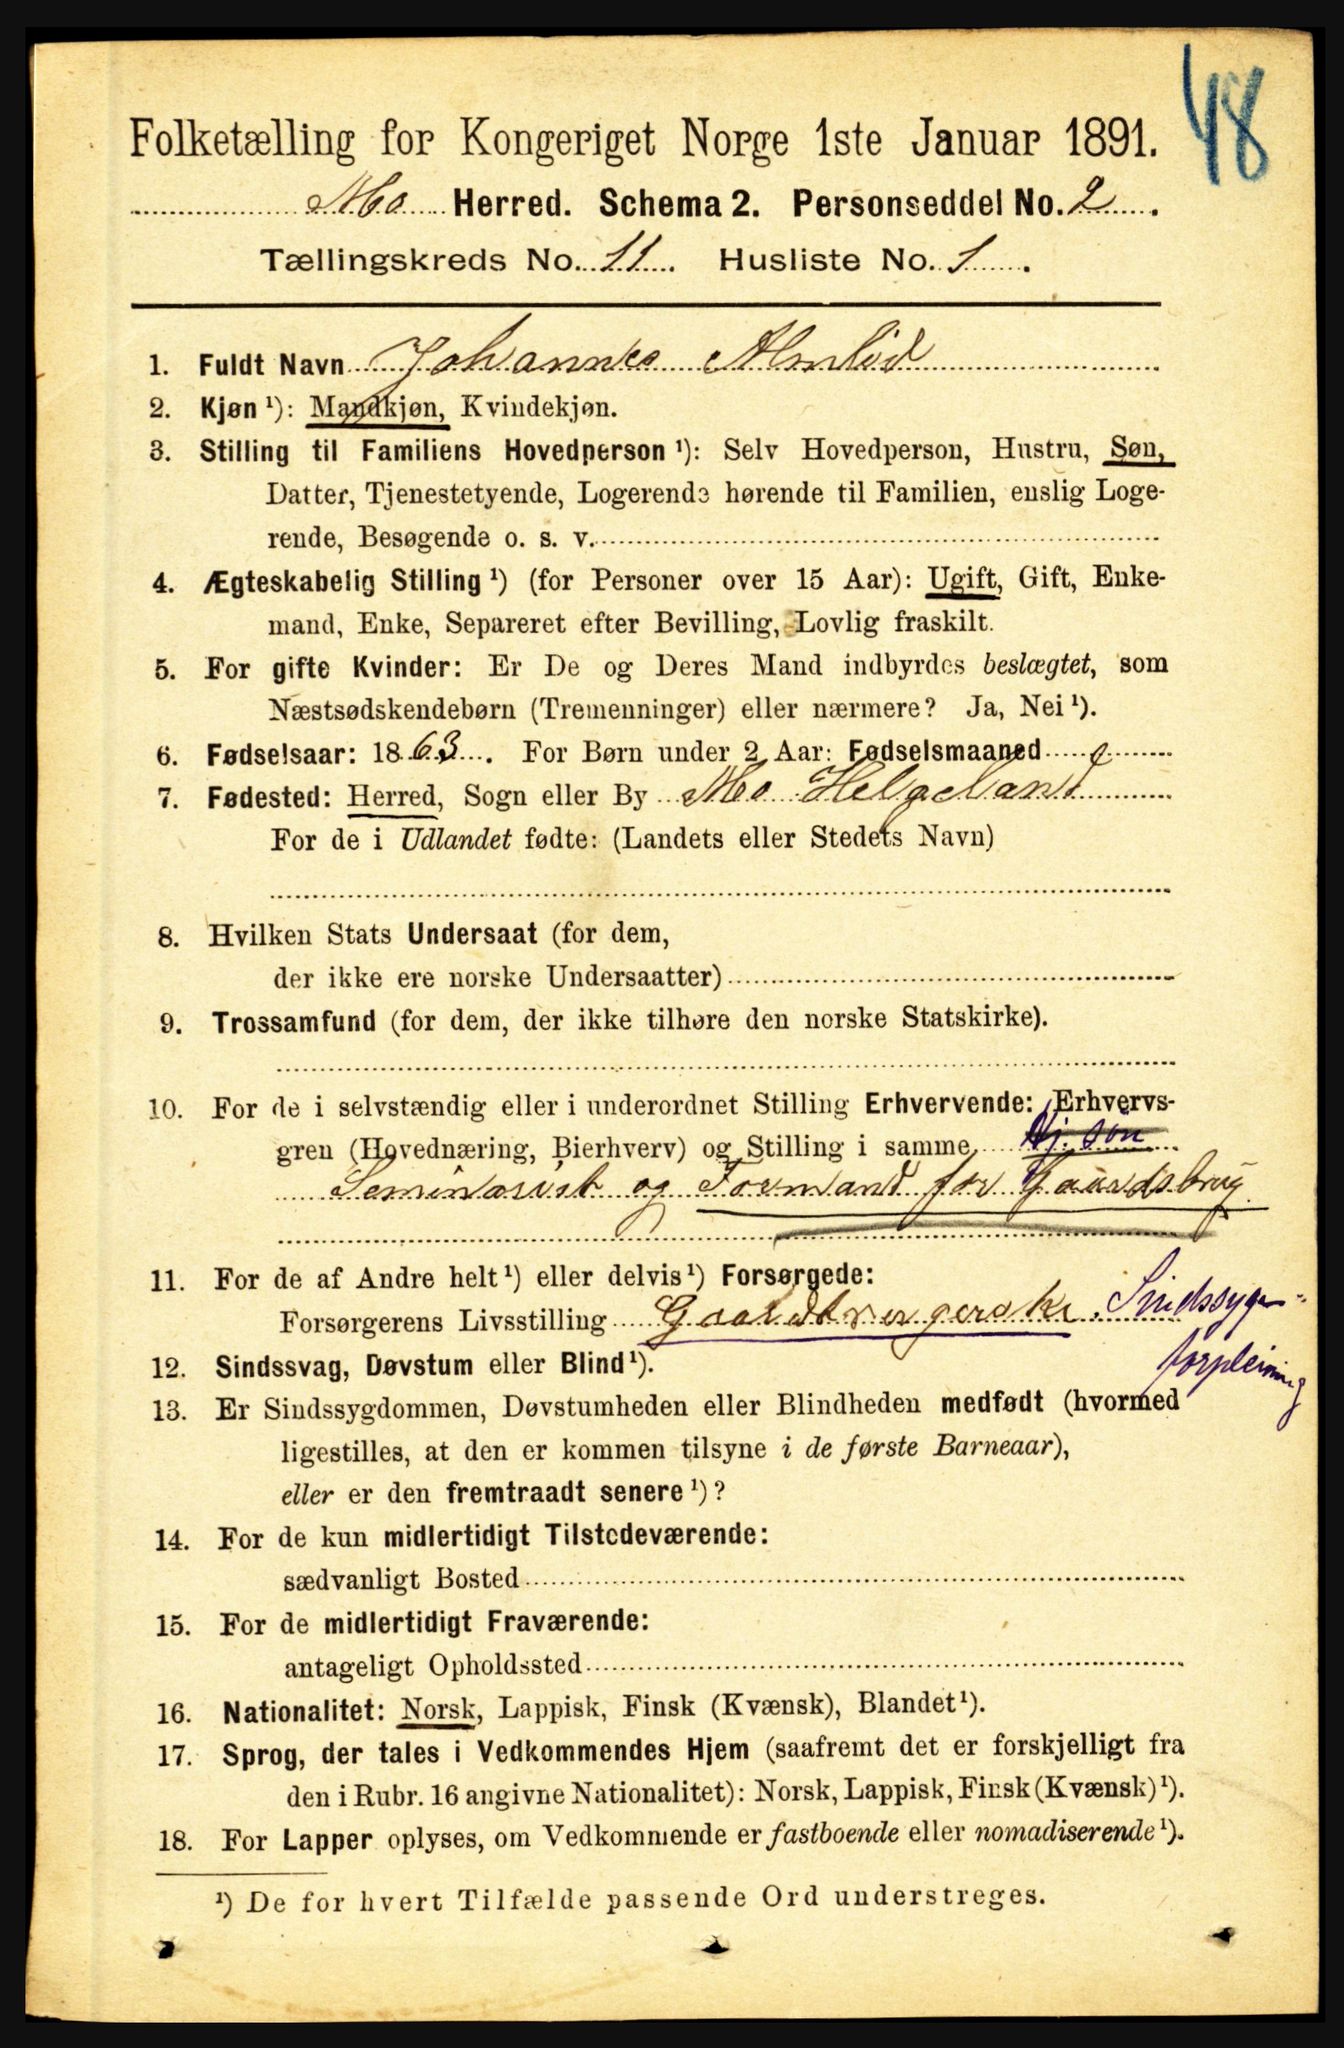 48
Folketælling for Kongeriget Norge 1ste Januar 1891.
Mo Herred. Schema 2. Personseddel No. 2.
Tællingskreds No. 11. Husliste No. 1.
1. Fuldt Navn Johannes Almlid
2. Kjøn ¹): Mandkjøn, Kvindekjøn.
3. Stilling til Familiens Hovedperson ¹): Selv Hovedperson, Hustru, Søn,
Datter, Tjenestetyende, Logerende hørende til Familien, enslig Loge-
rende, Besøgende o. s. v.
4. Ægteskabelig Stilling ¹) (for Personer over 15 Aar): Ugift, Gift, Enke-
mand, Enke, Separeret efter Bevilling, Lovlig fraskilt.
5. For gifte Kvinder: Er De og Deres Mand indbyrdes beslægtet, som
Næstsødskendebørn (Tremenninger) eller nærmere? Ja, Nei ¹).
6. Fødselsaar: 1863. For Børn under 2 Aar: Fødselsmaaned
7. Fødested: Herred, Sogn eller By Mo Helgeland
For de i Udlandet fødte: (Landets eller Stedets Navn)
8. Hvilken Stats Undersaat (for dem,
der ikke ere norske Undersaatter)
9. Trossamfund (for dem, der ikke tilhøre den norske Statskirke).
10. For de i selvstændig eller i underordnet Stilling Erhvervende: Erhvervs-
gren (Hovednæring, Bierhverv) og Stilling i samme Hj. søn
Seminarist og Formand for Gaardsbrug
11. For de af Andre helt ¹) eller delvis ¹) Forsørgede:
Forsørgerens Livsstilling Gaardbrugerske. Sindssyge-
forpleining
12. Sindssvag, Døvstum eller Blind ¹).
13. Er Sindssygdommen, Døvstumheden eller Blindheden medfødt (hvormed
ligestilles, at den er kommen tilsyne i de første Barneaar),
eller er den fremtraadt senere ¹)?
14. For de kun midlertidigt Tilstedeværende:
sædvanligt Bosted
15. For de midlertidigt Fraværende:
antageligt Opholdssted
16. Nationalitet: Norsk, Lappisk, Finsk (Kvænsk), Blandet ¹).
17. Sprog, der tales i Vedkommendes Hjem (saafremt det er forskjelligt fra
den i Rubr. 16 angivne Nationalitet): Norsk, Lappisk, Finsk (Kvænsk) ¹).
18. For Lapper oplyses, om Vedkommende er fastboende eller nomadiserende ¹).
¹) De for hvert Tilfælde passende Ord understreges.